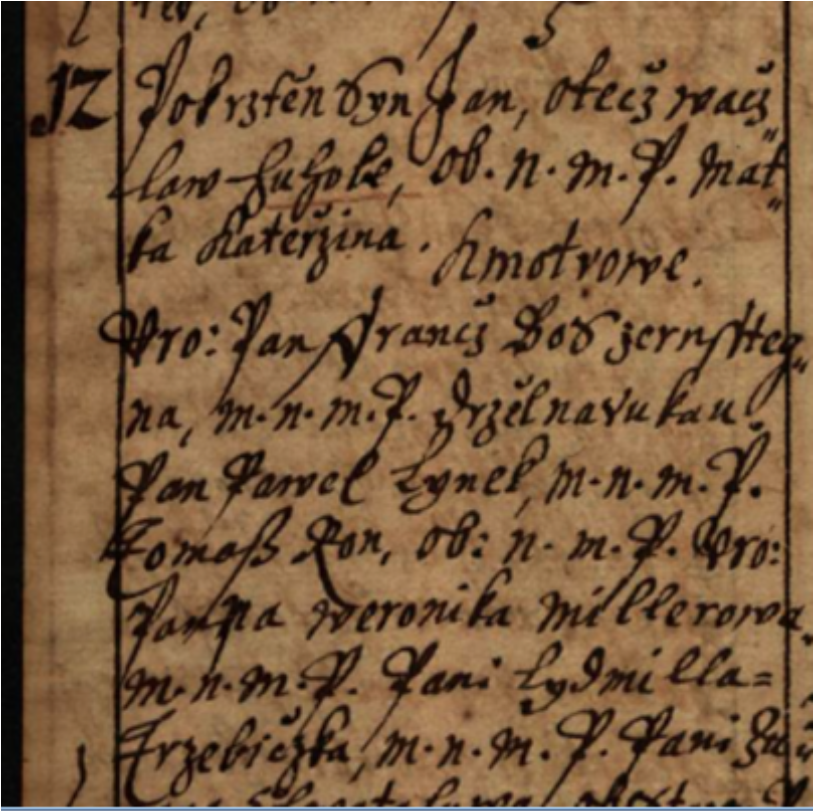 12 Pokrztěn Syn Jan, otecz wacz„
law Huhole, ob. n. m. P. Mat„
ka Kateržina. Kmotrowe.
Uro: Pan Francz Bos zernsteg„
na, m. n. m. P. držěl na rukau.
Pan Pawel Lynek, m. n. m. P.
Tomaß Ron, ob: n. m. P. Uro:
Panna Weronika Millerowa,
m. n. m. P. Pani Lydmilla=
Trzebiczka, m. n. m. P. Pani